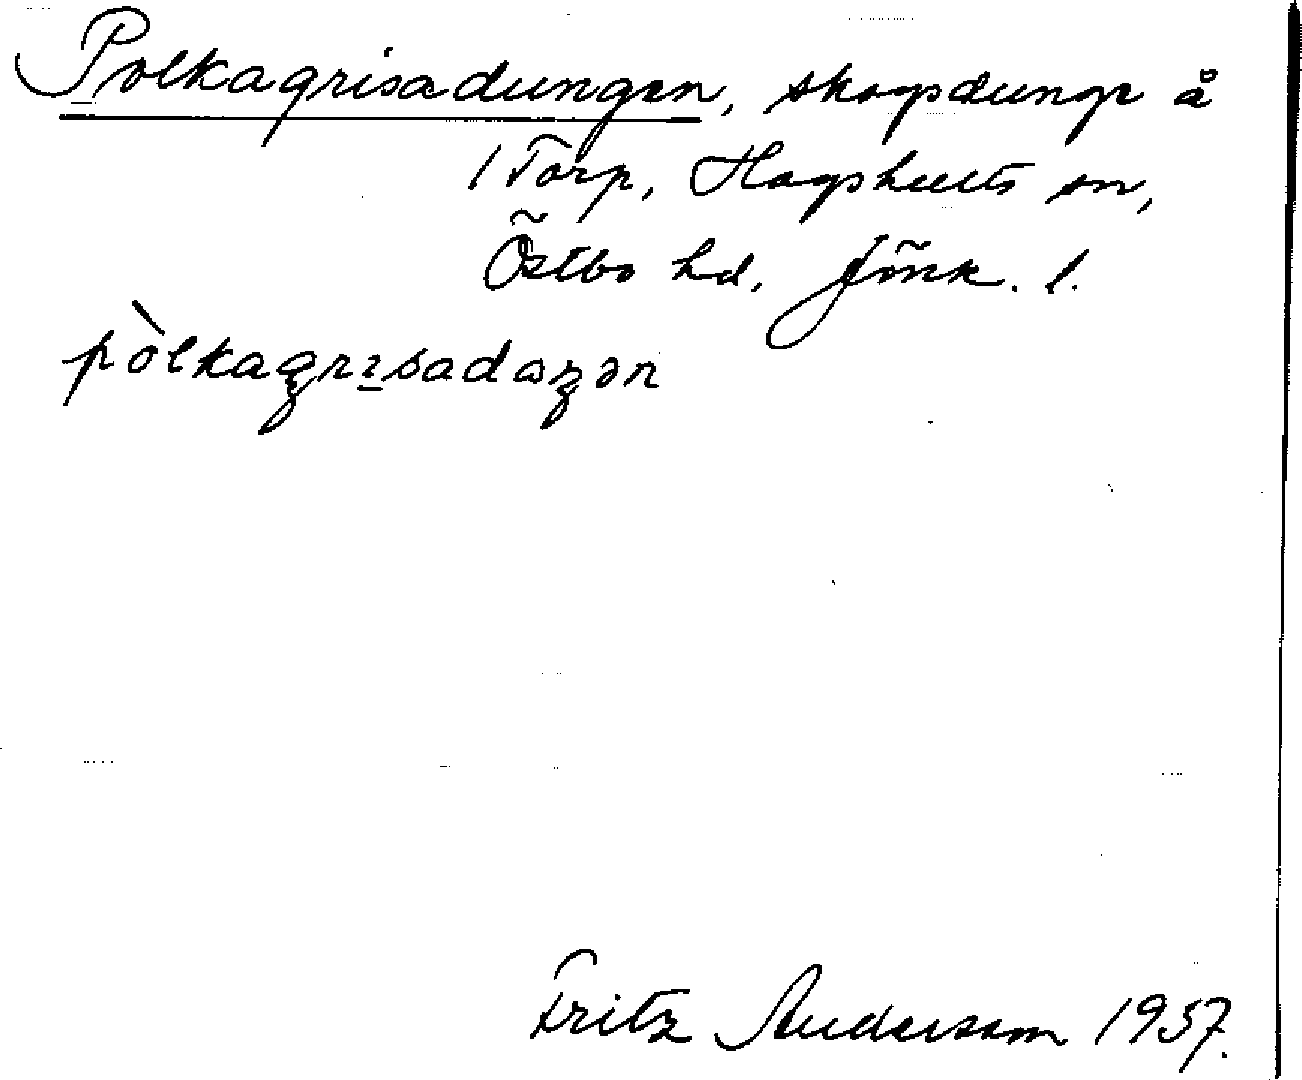 Polkagrisadungen, skogsdunge å
1 Torp, Hagshults sn,
Östbo hd, Jönk. l.
pòlkagrisadaŋən
Fritz Andersson 1957.